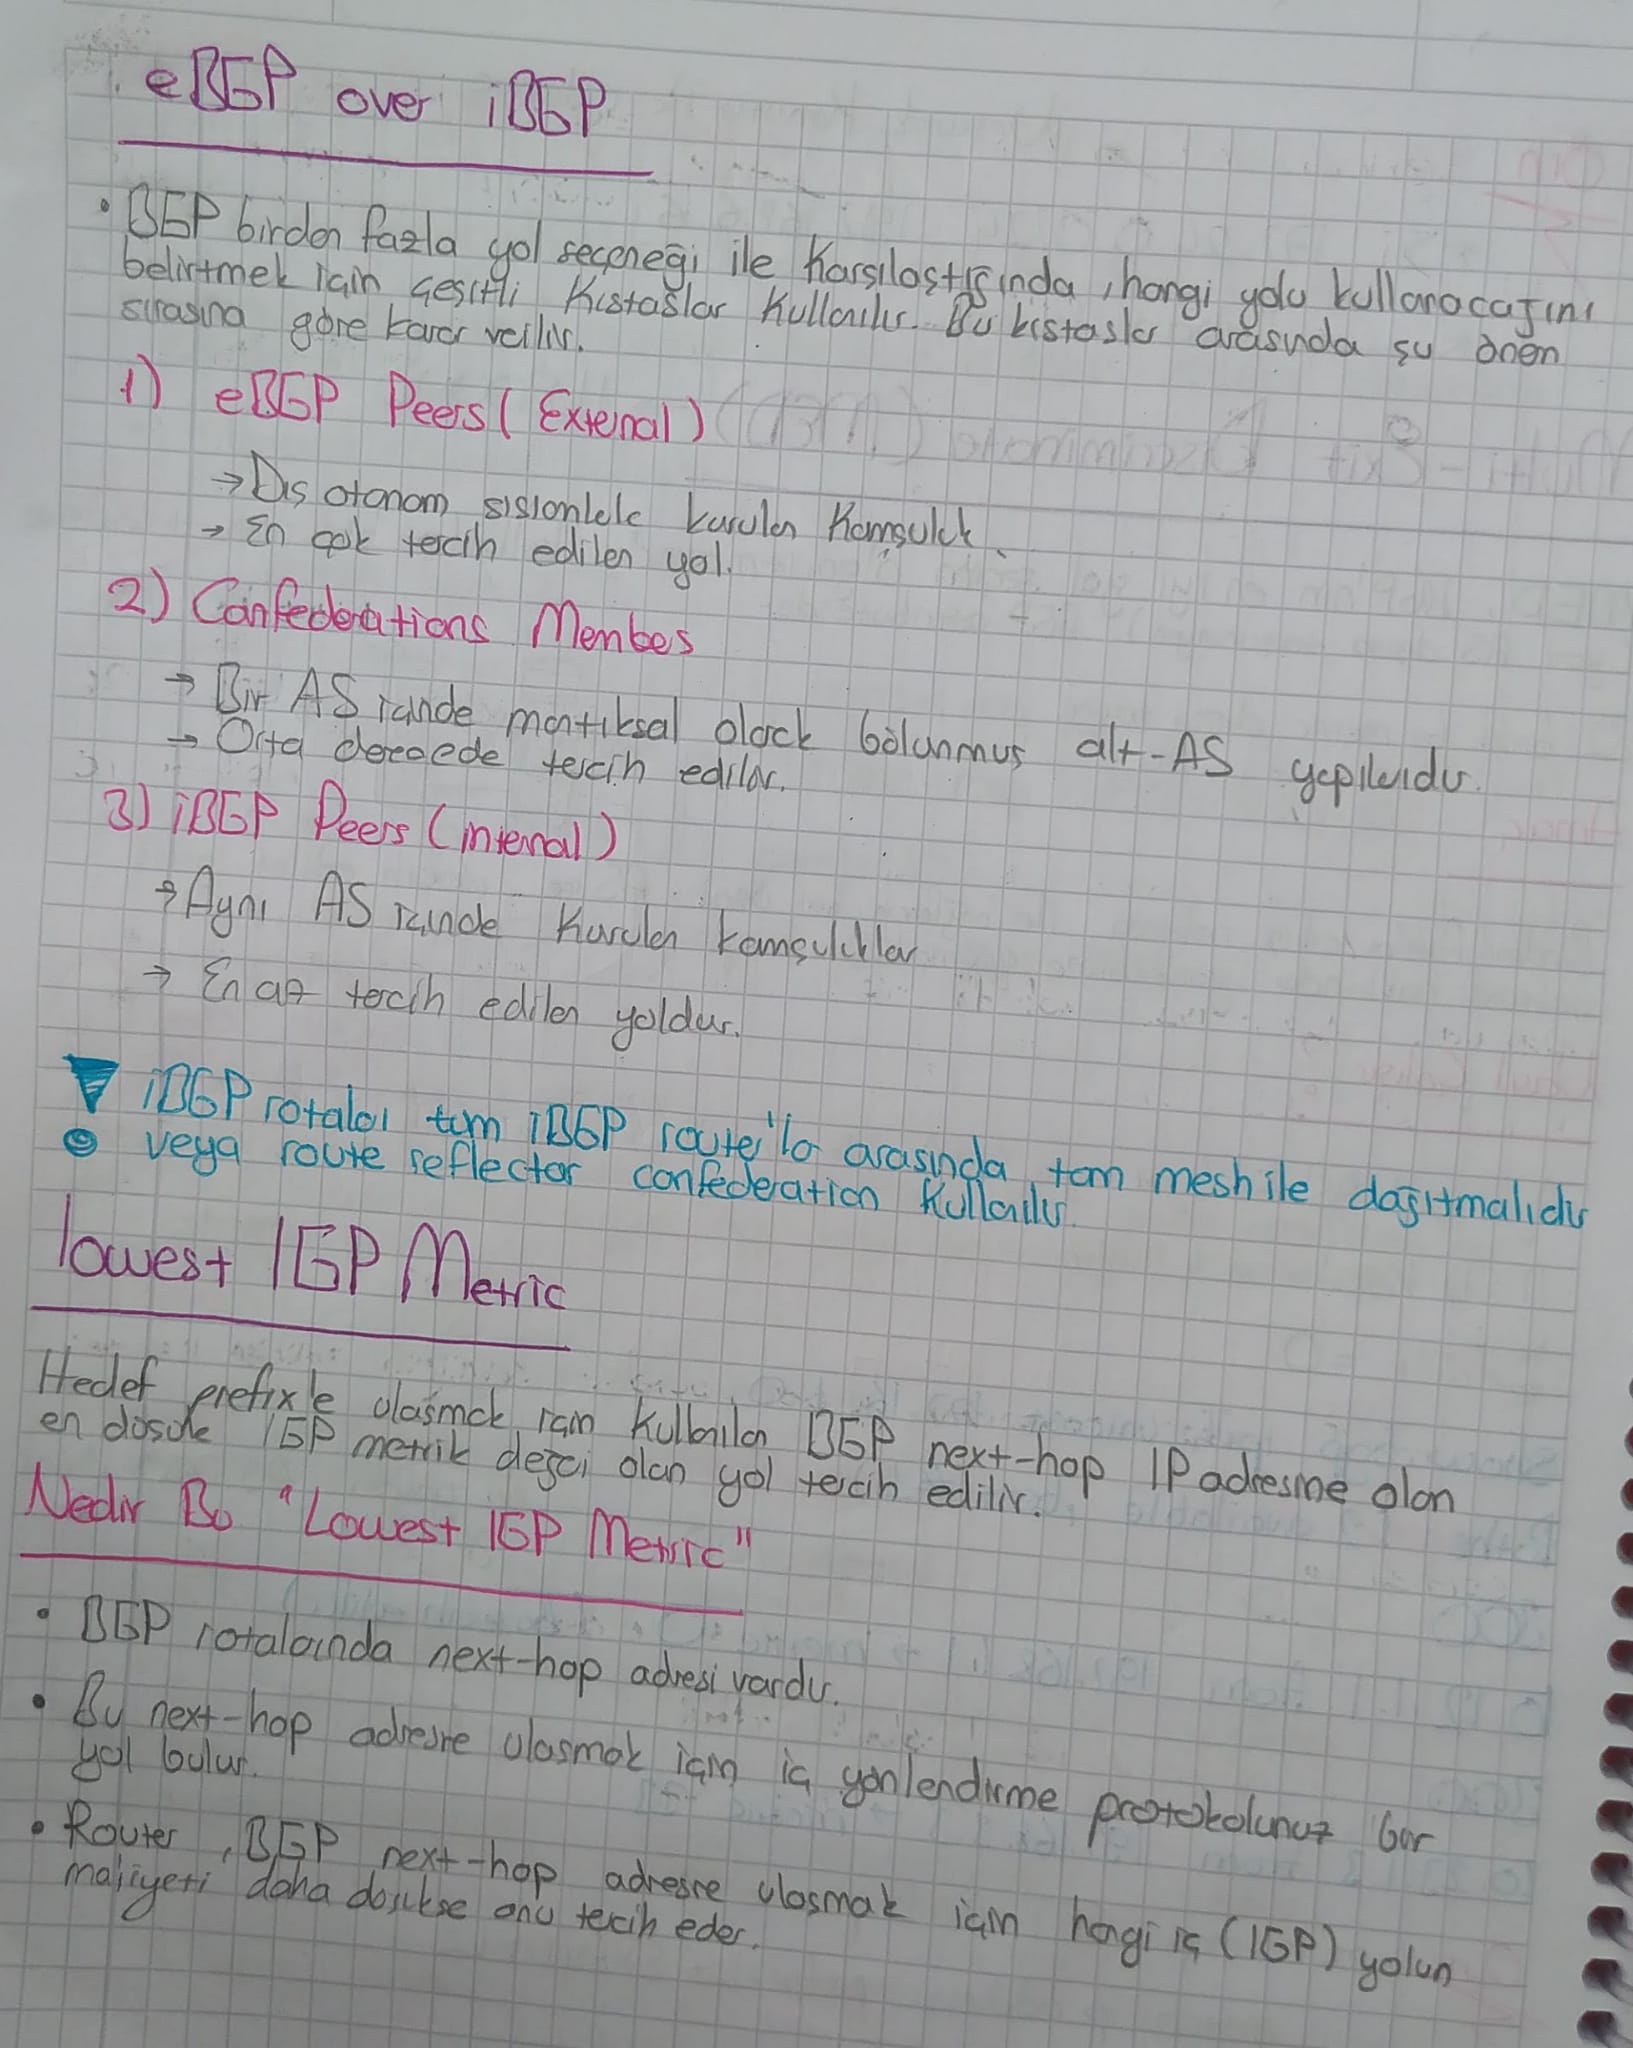 eBGP over iBGP
• BGP birden fazla yol seçeneği ile karşılaştığında, hangi yolu kullanacağını
belirtmek için çeşitli kıstaslar kullanılır. Bu kıstaslar arasında şu önem
sırasına göre karar verilir.
1) eBGP Peers (External)
→ Dış otonom sistemlerle kurulan komşuluk.
→ En çok tercih edilen yol.
2) Confederations Members
→ Bir AS içinde mantıksal olarak bölünmüş alt-AS yapılarıdır.
→ Orta derecede tercih edilir.
3) iBGP Peers (internal)
→ Aynı AS içinde kurulan komşuluklar
→ En az tercih edilen yoldur.
iBGP rotaları tüm iBGP router'lar arasında tam mesh ile dağıtmalıdır
veya route reflector confederation kullanılır.
lowest IGP Metric
Hedef prefix'e ulaşmak için kullanılan BGP next-hop IP adresine olan
en düşük IGP metrik değeri olan yol tercih edilir.
Nedir Bu "Lowest IGP Metric"
• BGP rotalarında next-hop adresi vardır.
• Bu next-hop adresine ulaşmak için iç yönlendirme protokolünüz bir
yol bulur.
• Router, BGP next-hop adresine ulaşmak için hangi iç (IGP) yolun
maliyeti daha düşükse onu tercih eder.